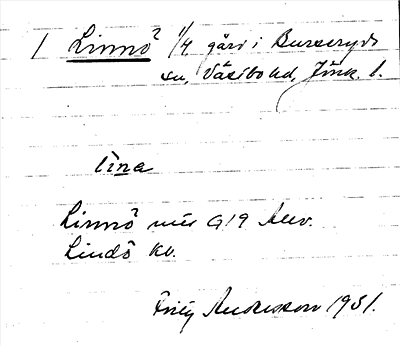 1 Linnö 1/4 gård i Burseryds
sn, Västbo hd, Jönk. l.
lina
Linnö
Lindö kv.
Andersson 1951.